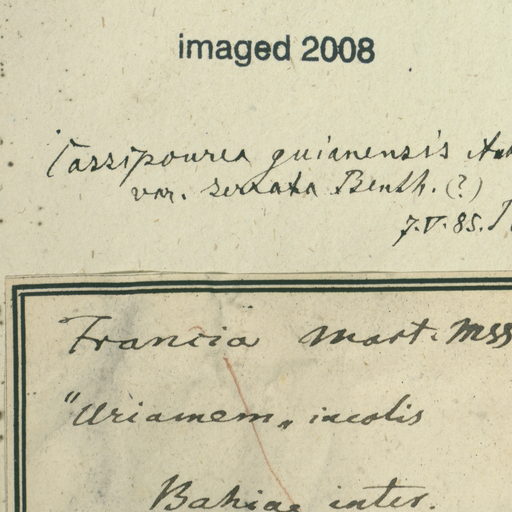 imaged 2008
Cassipourea guianensis Aub
var. serrata Benth. (?)
7.V.85.
Francia Mart. Mss
"Uriamem„ incolis
Bahiae inter.